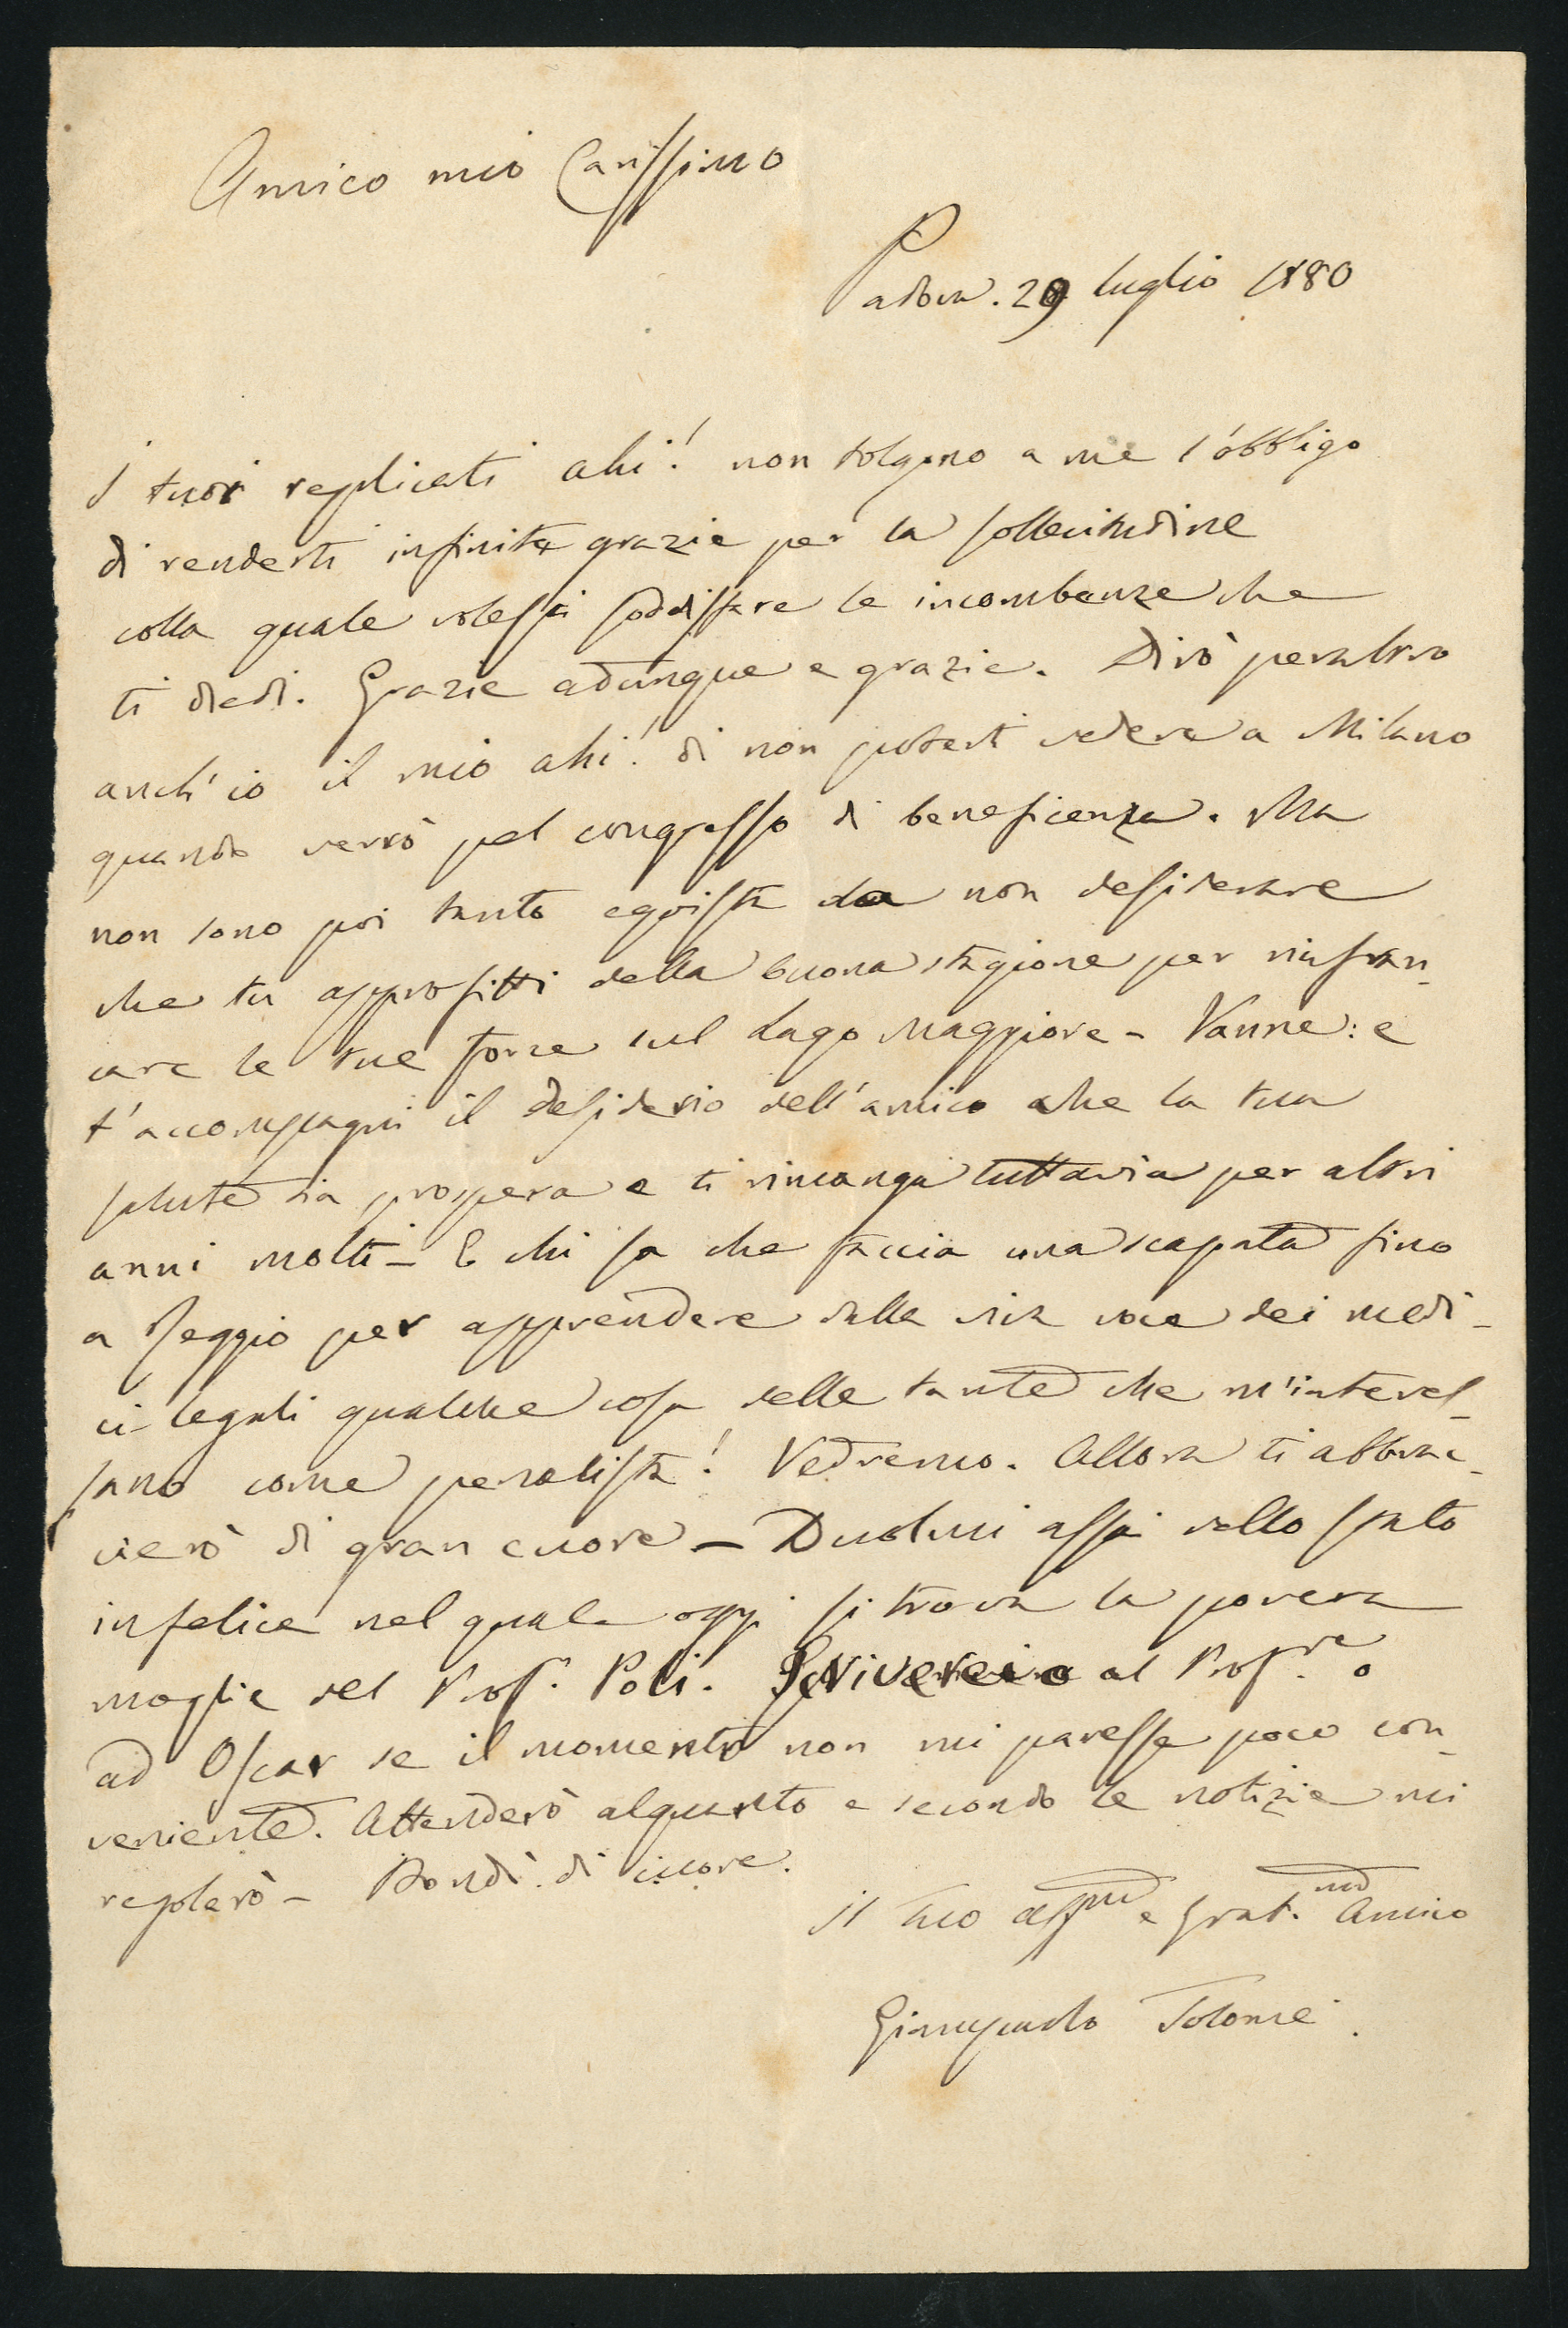 Amico mio Carissimo
Padova. 29 luglio 1880
I tuoi replicati ahi! non tolgono a me l'obbligo
di renderti infinite grazie per la sollecitudine
colla quale volessi soddisfare le incombenze che
ti diedi. Grazie adunque e grazie. Dirò peraltro
anch'io il mio ahi! di non poterti vedere a Milano
quando verrò pel congresso di beneficenza. Ma
non sono poi tanto egoista da non desiderare
che tu approfitti della buona stagione per rinfran-
care le tue forze sul Lago Maggiore - Vanne: e
t'accompagni il desiderio dell'amico che la tua
salute sia prospera e ti rimanga tuttavia per altri
anni molti - E chi sa che faccia una scapata fino
a Reggio per apprendere dalla viva voce dei medi-
ci-legali qualche cosa delle tante che m'interes-
sano come penalista! Vedremo. Allora ti abbrac-
cierò di gran cuore - Duolmi assai dello stato
infelice nel quale oggi si trova la povera
moglie del Prof. Poli. Scriverei al Prof.re o
ad Oscar se il momento non mi paresse poco con-
veniente. Attenderò alquanto e secondo le notizie mi
regolerò - Bondì di cuore.
Il tuo aff.mo e grat.mo Amico
Giampaolo Tolomei.